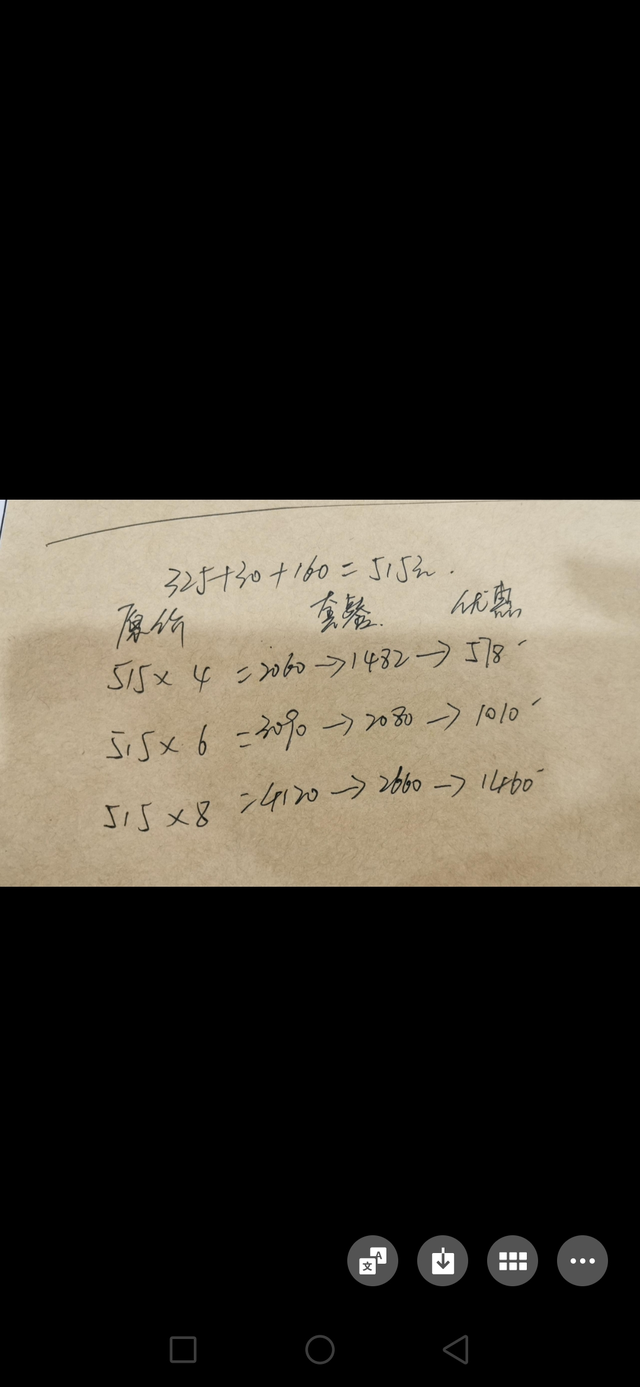 325+30+160=515元.
原价 套餐. 优惠
515×4=2060→1482→578
515×6=3090→2080→1010
515×8=4120→2660→1460